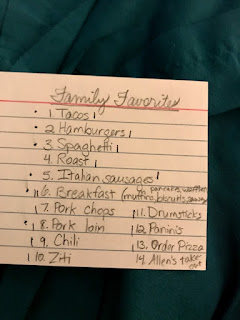 Family Favorites
1. Tacos
2. Hamburgers
3. Spaghetti
4. Roast
5. Italian sausages
6. Breakfast (muffins, biscuits, eggs, pancakes, waffles
7. Pork chops
8. Pork loin
9. Chili
10. Ziti
11. Drumsticks
12. Panini's
13. Order Pizza
14. Allen's take out